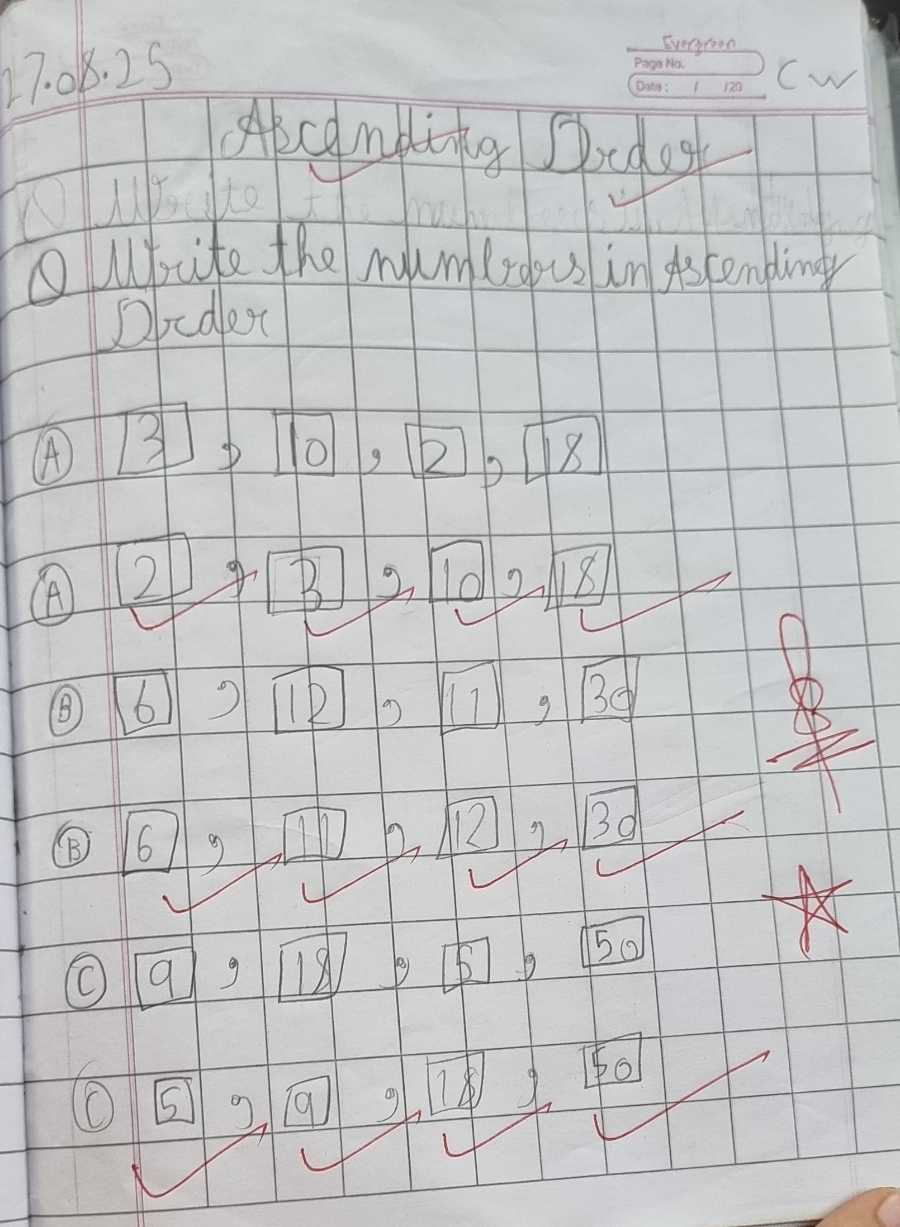 Evergreen
Page No.
Date: / /20
27.08.25
CW
Ascending Order
Q Write the numbers in Ascending
Order
A 3, 10, 2, 18
A 2, 3, 10, 18
B 6, 12, 11, 30
B 6, 11, 12, 30
C 9, 18, 5, 50
C 5, 9, 18, 50